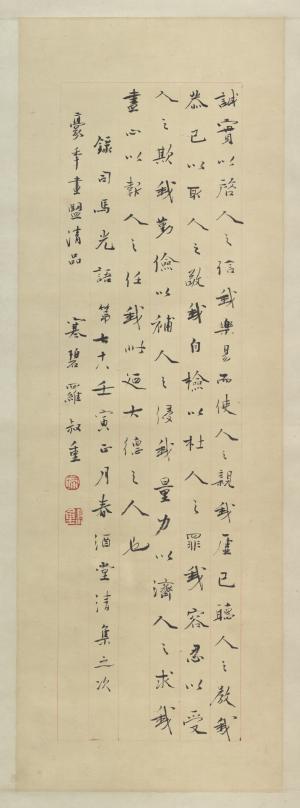 誠實以啓人之信我樂易而使人之親我虛己聽人之教我
恭己以取人之敬我自檢以杜人之罪我容忍以受
人之欺我勤儉以補人之侵我量力以濟人之求我
盡心以報人之任我此迺大德之人也
錄司馬光語第七十八壬寅正月春酒堂清集之次
豪季畫盟清品
寒碧羅叔重